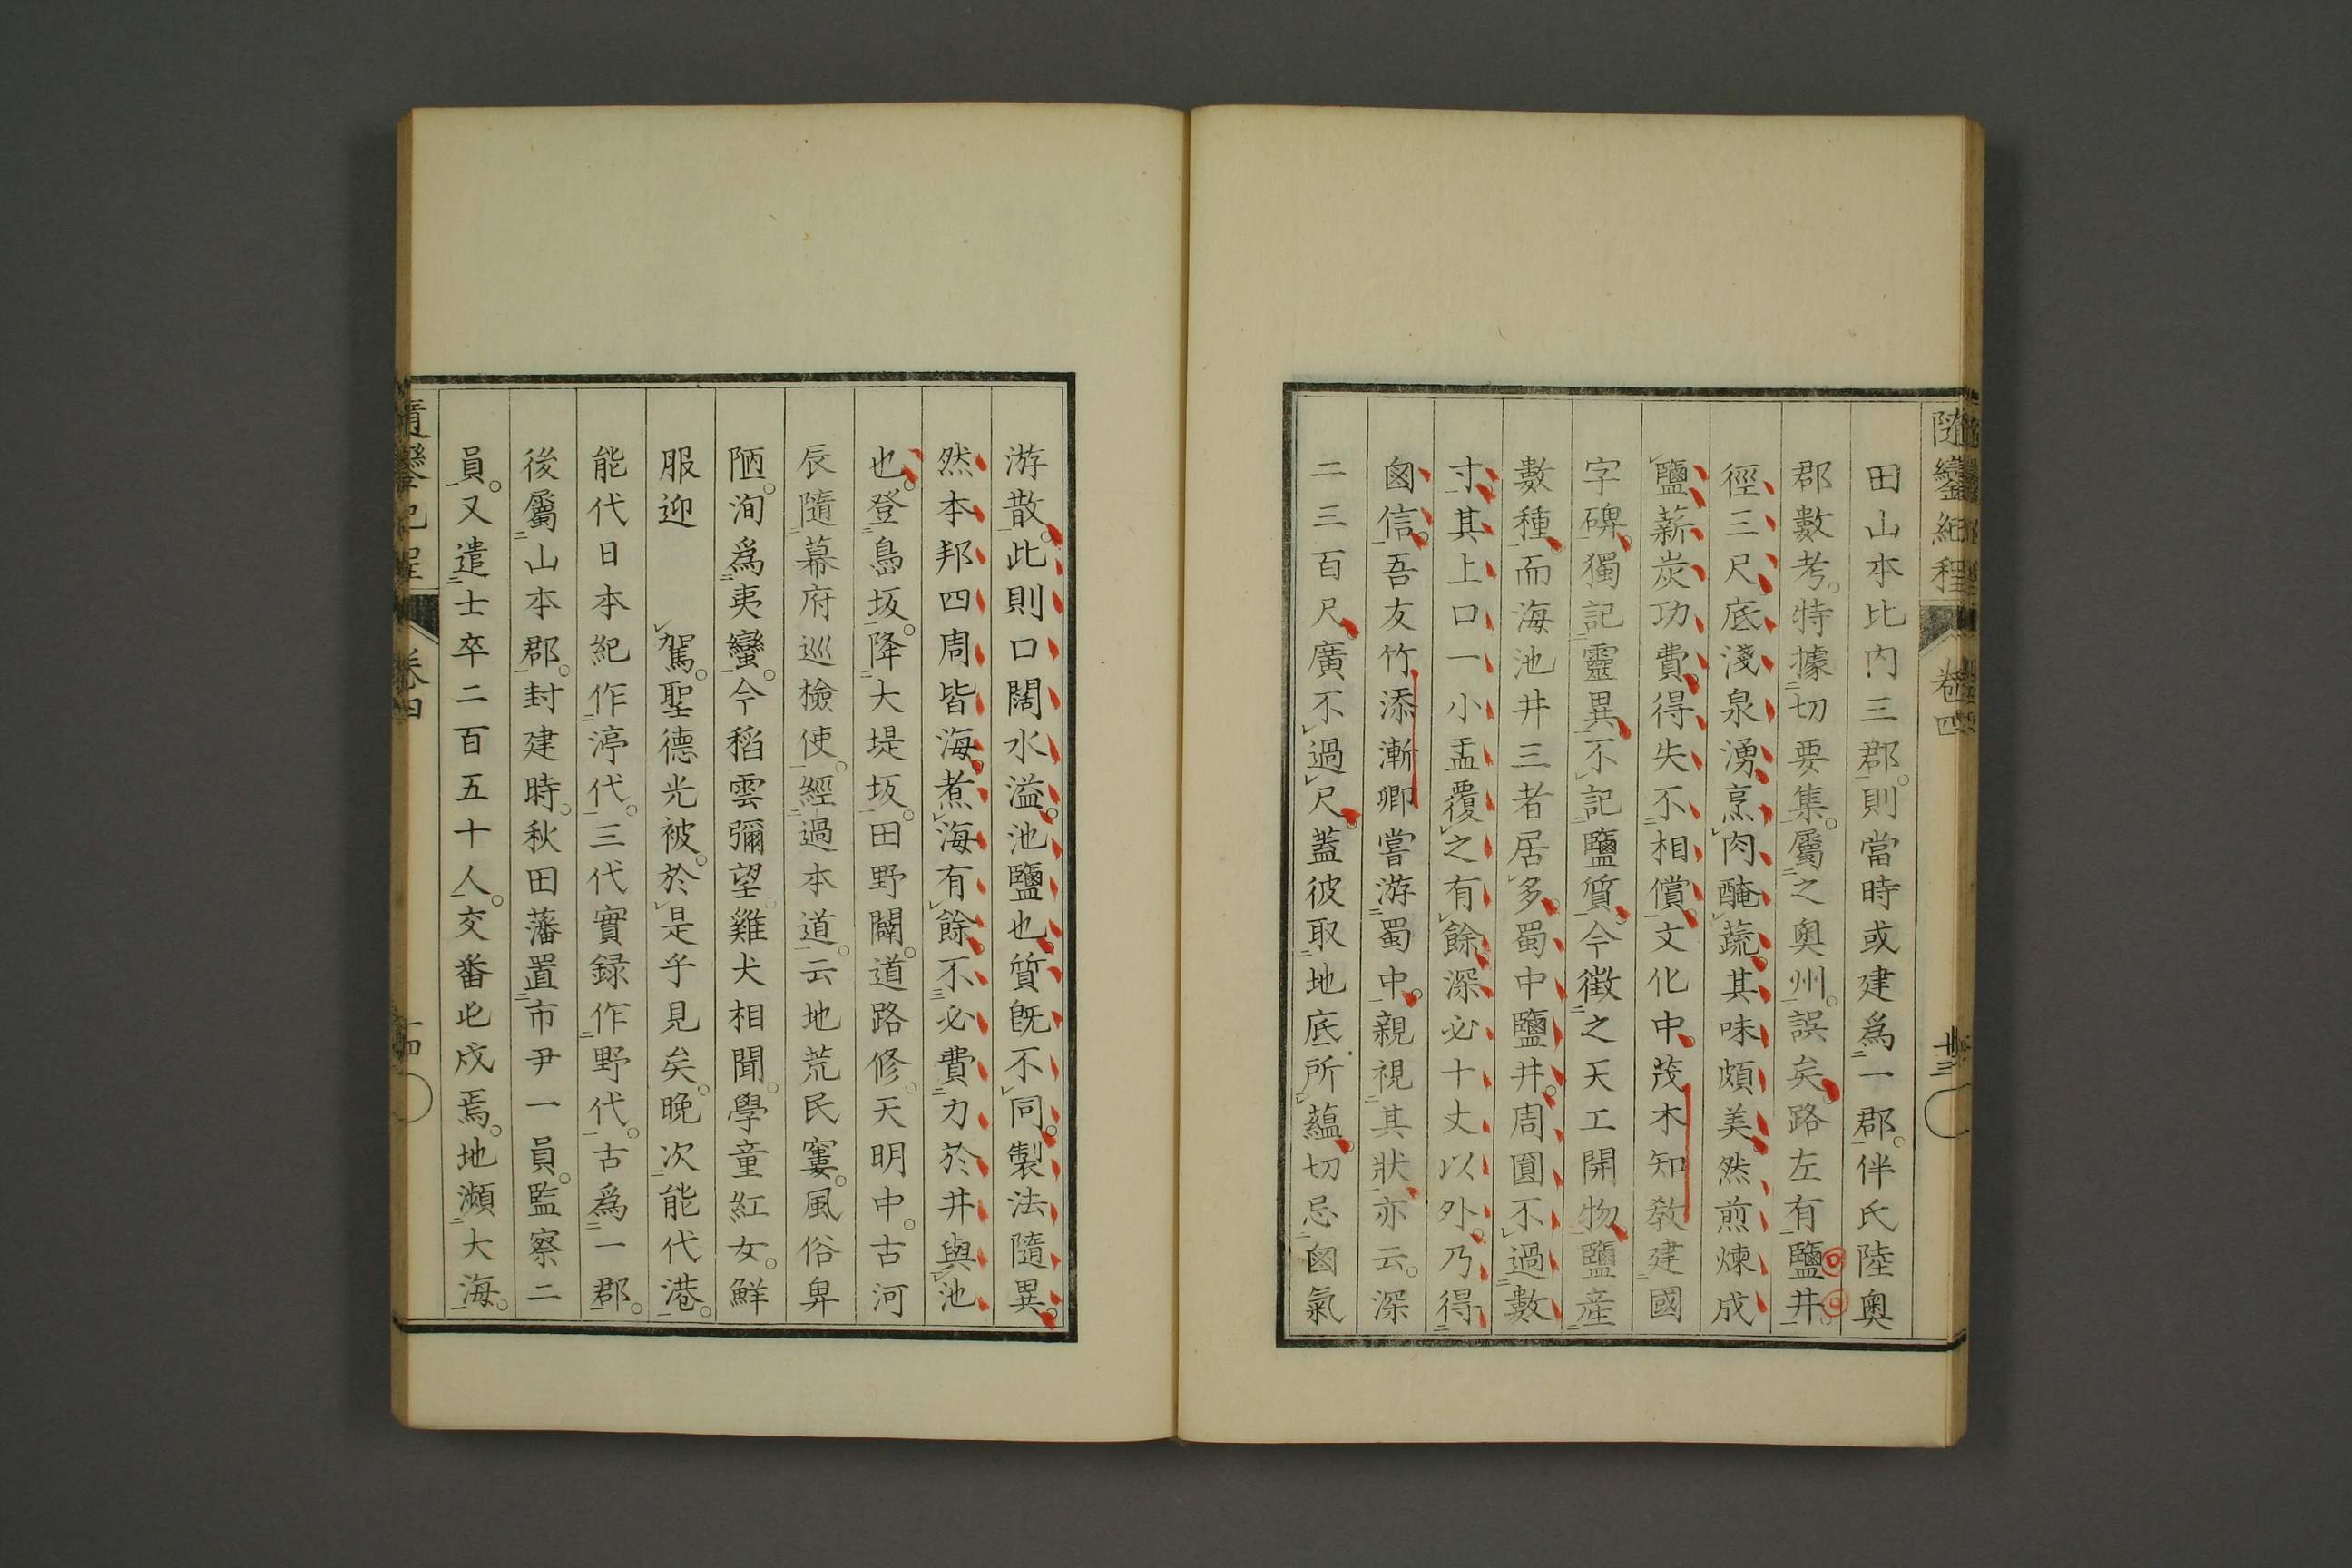 隨鑾紀程 卷四 廿三
田山本比内三郡。則當時或建爲一郡。伴氏陸奥
郡數考。特據切要集。屬之奥州。誤矣路左有鹽井。
徑三尺。底淺泉湧烹肉醃蔬。其味頗美然煎煉成
鹽薪炭功費。得失不相償文化中茂木知教建國
字碑。獨記靈異不記鹽質。今徵之天工開物。鹽産
數種。而海池井三者居多。蜀中鹽井。周圓不過數
寸。其上口一小盂覆之有餘。深必十丈以外。乃得
鹵信。吾友竹添漸卿嘗游蜀中。親視其狀亦云。深
二三百尺。廣不過尺。蓋彼取地底所蘊。切忌鹵氣
游散。此則口闊水溢。池鹽也。質既不同。製法隨異。
然本邦四周皆海。煮海有餘。不必費力於井與池
也。登島坂。降大堤坂。田野闢。道路修。天明中。古河
辰隨幕府巡檢使。經過本道。云地荒民窶。風俗卑
陋。洵爲夷蠻。今稻雲彌望。雞犬相聞。學童紅女。鮮
服迎　駕。聖德光被。於是乎見矣。晚次能代港。
能代日本紀作渟代。三代實録作野代。古爲一郡。
後屬山本郡。封建時。秋田藩置市尹一員。監察二
員。又遣士卒二百五十人。交番屯戍焉。地瀕大海。
隨鑾紀程 卷四